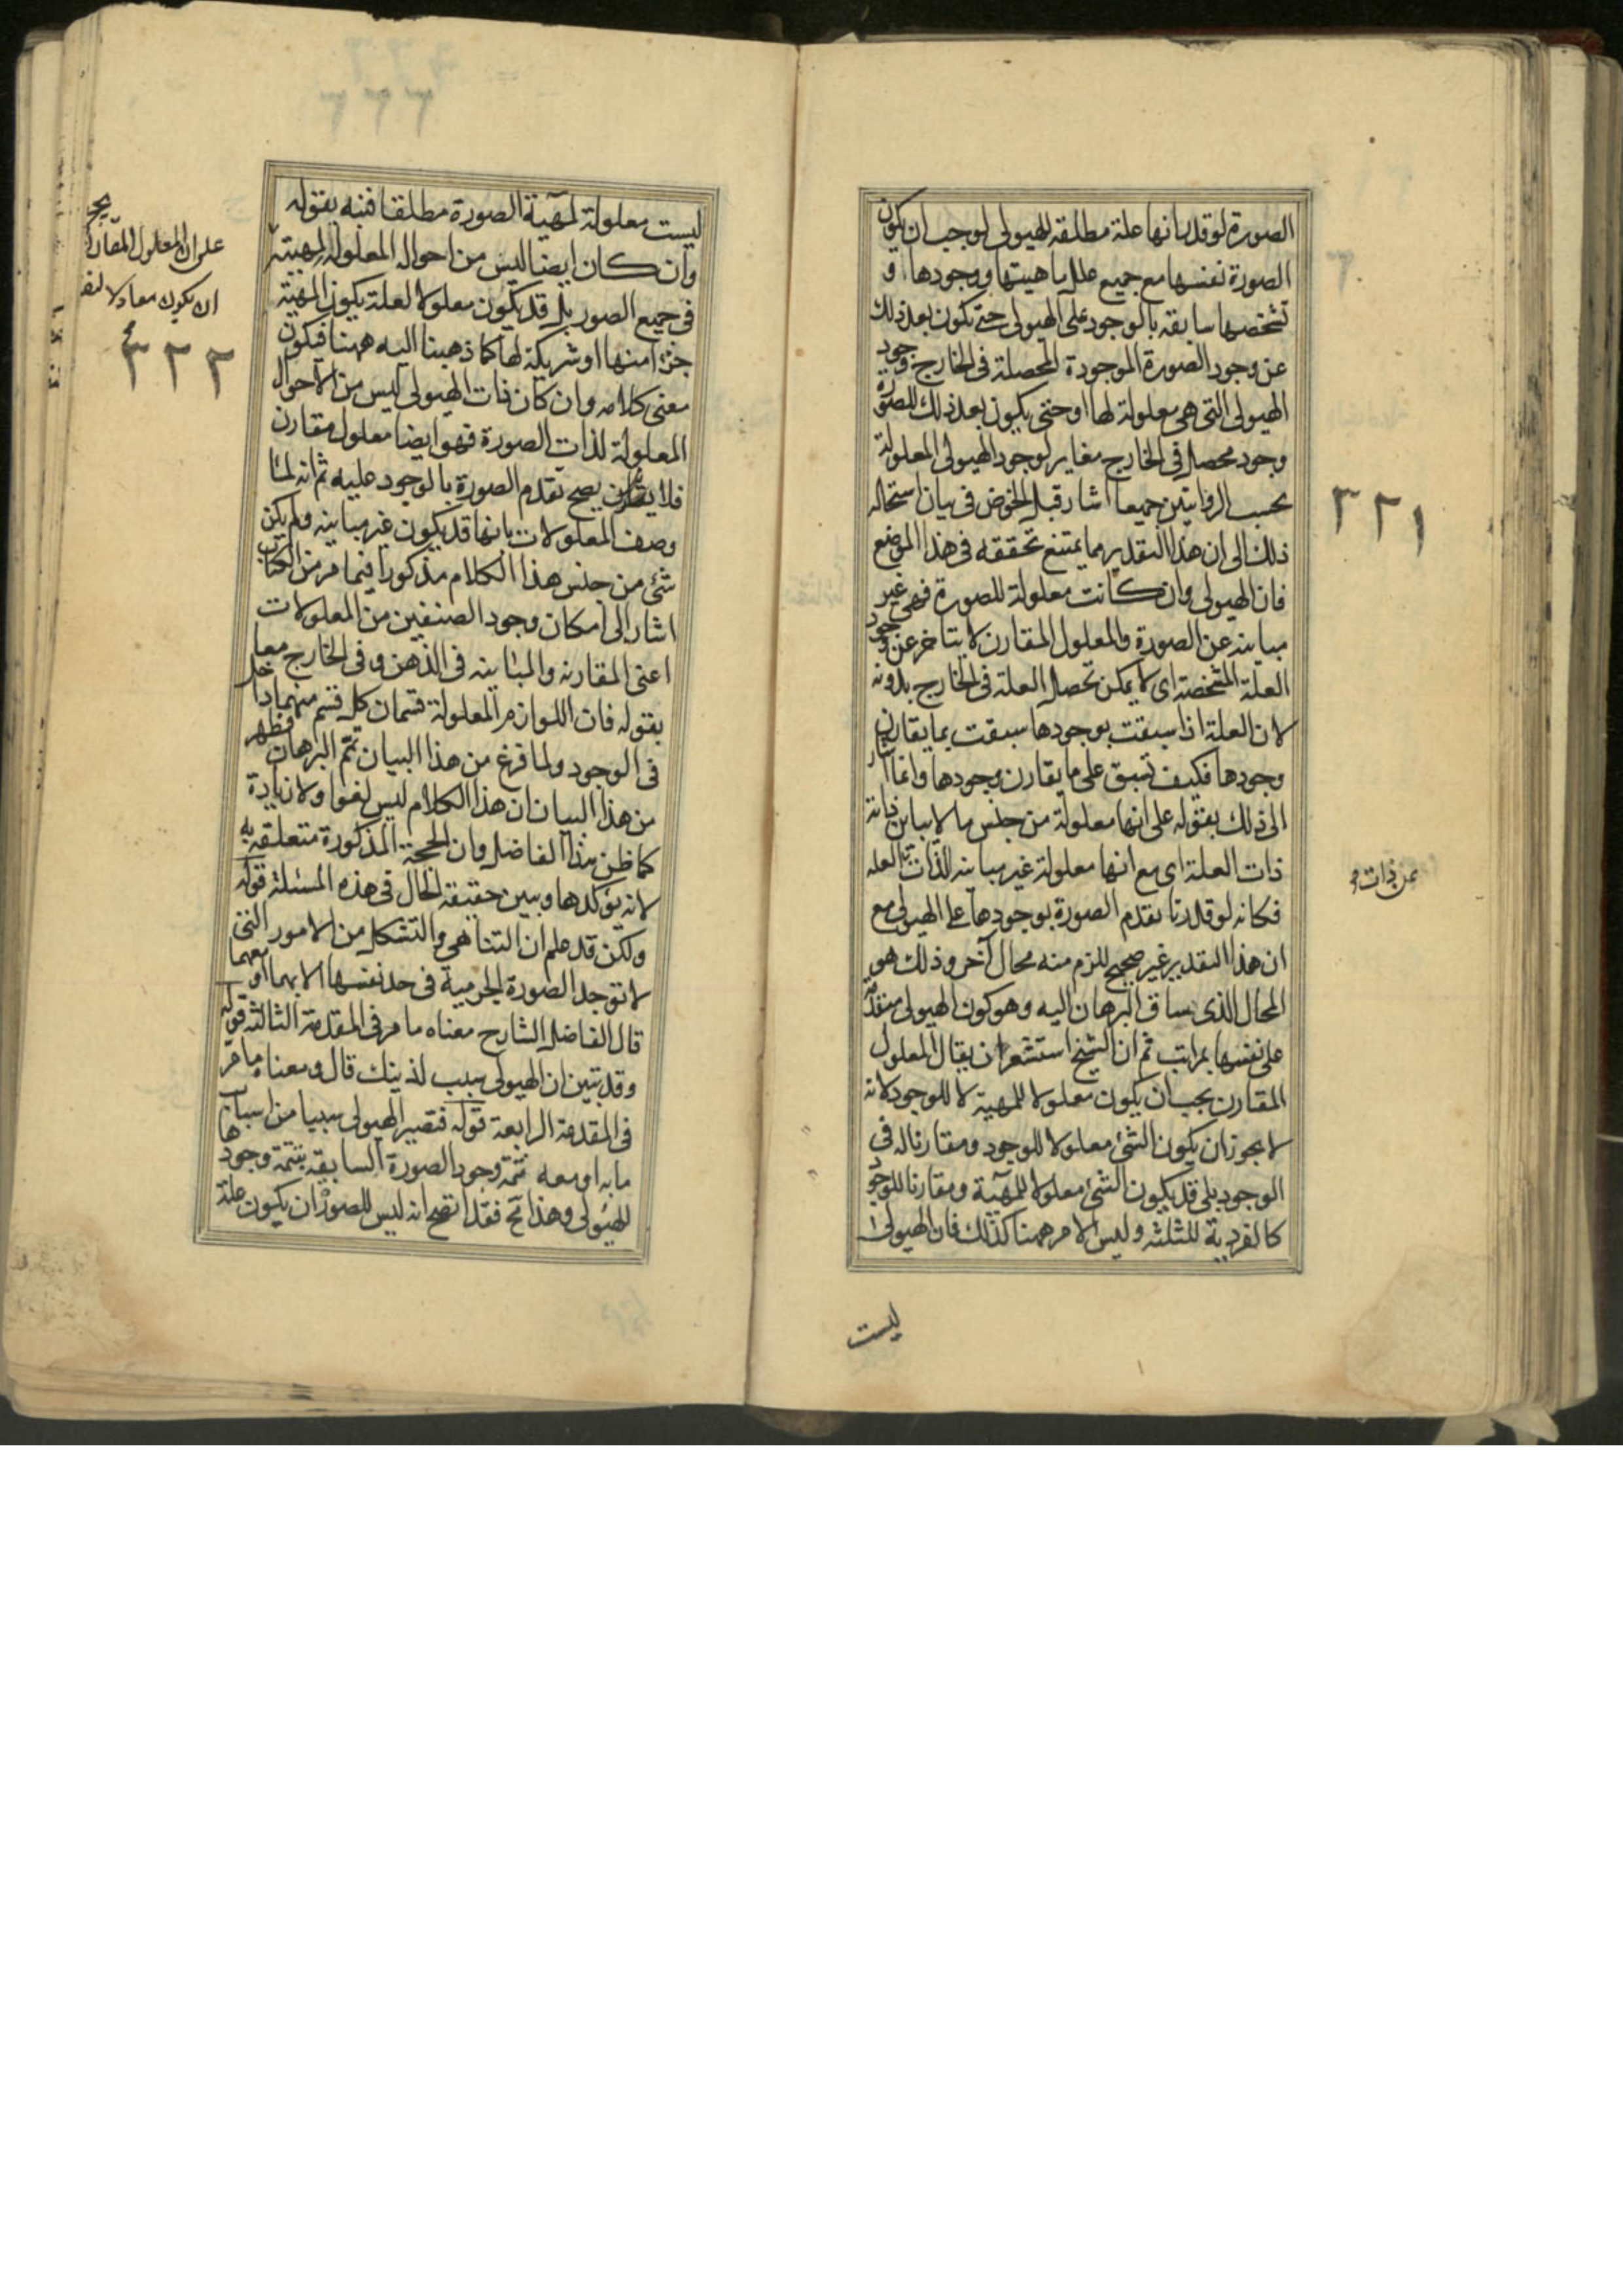 الصورة لو قدرنا انها علة مطلقه للهيولى لوجب ان يكون
الصورة نفسها مع جميع علل ماهيتها ووجودها و
تشخصها سابقه بالوجود على الهيولى حتى تكون بعد ذلك
عن وجود الصورة الموجودة المحصلة فى الخارج وجود
الهيولى التى هى معلولة لها او حتى يكون بعد ذلك للصورة
وجود محصل فى الخارج مغاير لوجود الهيولى المعلولة
بحسب الروايتين جميعا اشار قبل الخوض فى بيان استحاله
ذلك الى ان هذا التقدير مما يمتنع تحققه فى هذا الموضع
فان الهيولى وان كانت معلولة للصورة فهى غير
مباينه عن الصورة والمعلول المقارن لا يتاخر عن وجود
العلة المشخصة اى لا يمكن تحصل العلة فى الخارج بدونه
لان العلة اذا سبقت بوجودها سبقت بما يقارن
وجودها فكيف تسبق على ما يقارن وجودها وانما اشار
الى ذلك بقوله على انها معلولة من جنس ما لا يباين ذاته
ذات العلة اى مع انها معلولة غير مباينه لذات العله
فكانه لو قدرنا تقدم الصورة بوجودها على الهيولى مع
ان هذا التقدير غير صحيح للزم منه محال آخر وذلك هو
المحال الذى ساق البرهان اليه وهو كون الهيولى متقدمة
على نفسها بمراتب ثم ان الشيخ استشعر ان يقال المعلول
المقارن يجب ان يكون معلولا للمهية لا للوجود لانه
لا يجوز ان يكون الشئ معلولا للوجود ومقارنا له فى
الوجود بلى قد يكون الشئ معلولا للمهية ومقارنا للوجود
كالفردية للثلثه وليس الامر ههنا كذلك فان الهيولى
ليست
٣٢١
عن ذات
ليست معلولة لمهية الصورة مطلقا فنبه بقوله
وان كان ايضا ليس من احواله المعلولة لمهيته
فى جميع الصور بل قد يكون معلولا لعلة يكون المهية
جزءا منها او شريكة لها كما ذهبنا اليه ههنا فيكون
معنى كلامه وان كان ذات الهيولى ليس من الاحوال
المعلولة لذات الصورة فهو ايضا معلول مقارن
فلا يصح تقدم الصورة بالوجود عليه ثم انه لما
وصف المعلولات بانها قد يكون غير مباينه ولم يكن
شئ من جنس هذا الكلام مذكورا فيما مر من الكتاب
اشار الى امكان وجود الصنفين من المعلولات
اعنى المقارنه والمباينه فى الذهن وفى الخارج معا
بقوله فان اللوازم المعلولة قسمان كل قسم منهما داخل
فى الوجود ولما فرغ من هذا البيان تمم البرهان فظهر
من هذا البيان ان هذا الكلام ليس لغوا ولا زيادة
كما ظن هذا الفاضل وان الحجة المذكورة متعلقه به
لانه يؤكدها ويبين حقيقة الحال فى هذه المسئلة قوله
ولكن قد علم ان التناهى والتشكل من الامور التى
لا توجد الصورة الجرمية فى حد نفسها الا بهما او معهما
قال الفاضل الشارح معناه ما مر فى المقدمة الثالثة قوله
وقد تبين ان الهيولى سبب لذينك قال ومعناه ما مر
فى المقدمة الرابعة قوله فتصير الهيولى سببا من اسباب
ما به او معه تتمة وجود الصورة السابقه بتتمة وجودها
للهيولى وهذا مح فقد اتضح انه ليس للصورة ان يكون علة
على ان المعلول المقارن
ان يكون معلولا
٣٢٢